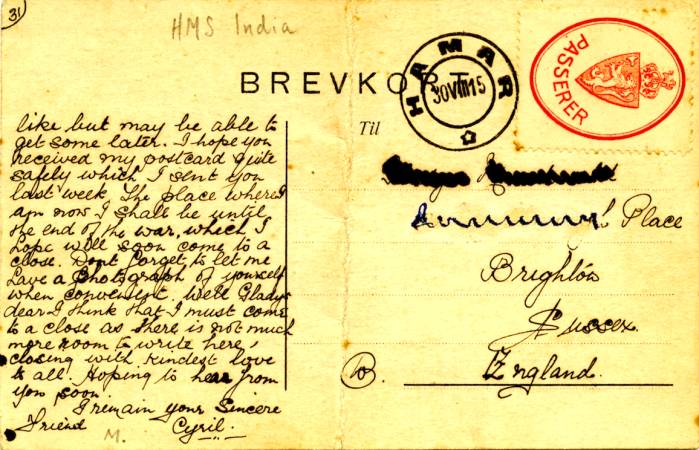 31
HMS India
BREVKORT
HAMAR
30VIII15
PASSERER
Til
like but may be able to
get some later. I hope you
received my postcard quite
safely which I sent you
last week. The place where I
am now I shall be until
the end of the war, which I
hope will soon come to a
close. Dont forget to let me
have a photograph of yourself
when convenient. Well Gladys
dear I think that I must come
to a close as there is not much
more room to write here,
closing with kindest love
to all. Hoping to hear from
you soon.
I remain your Sincere
Friend Cyril.
M.
Place
Brighton
Sussex.
B. England.